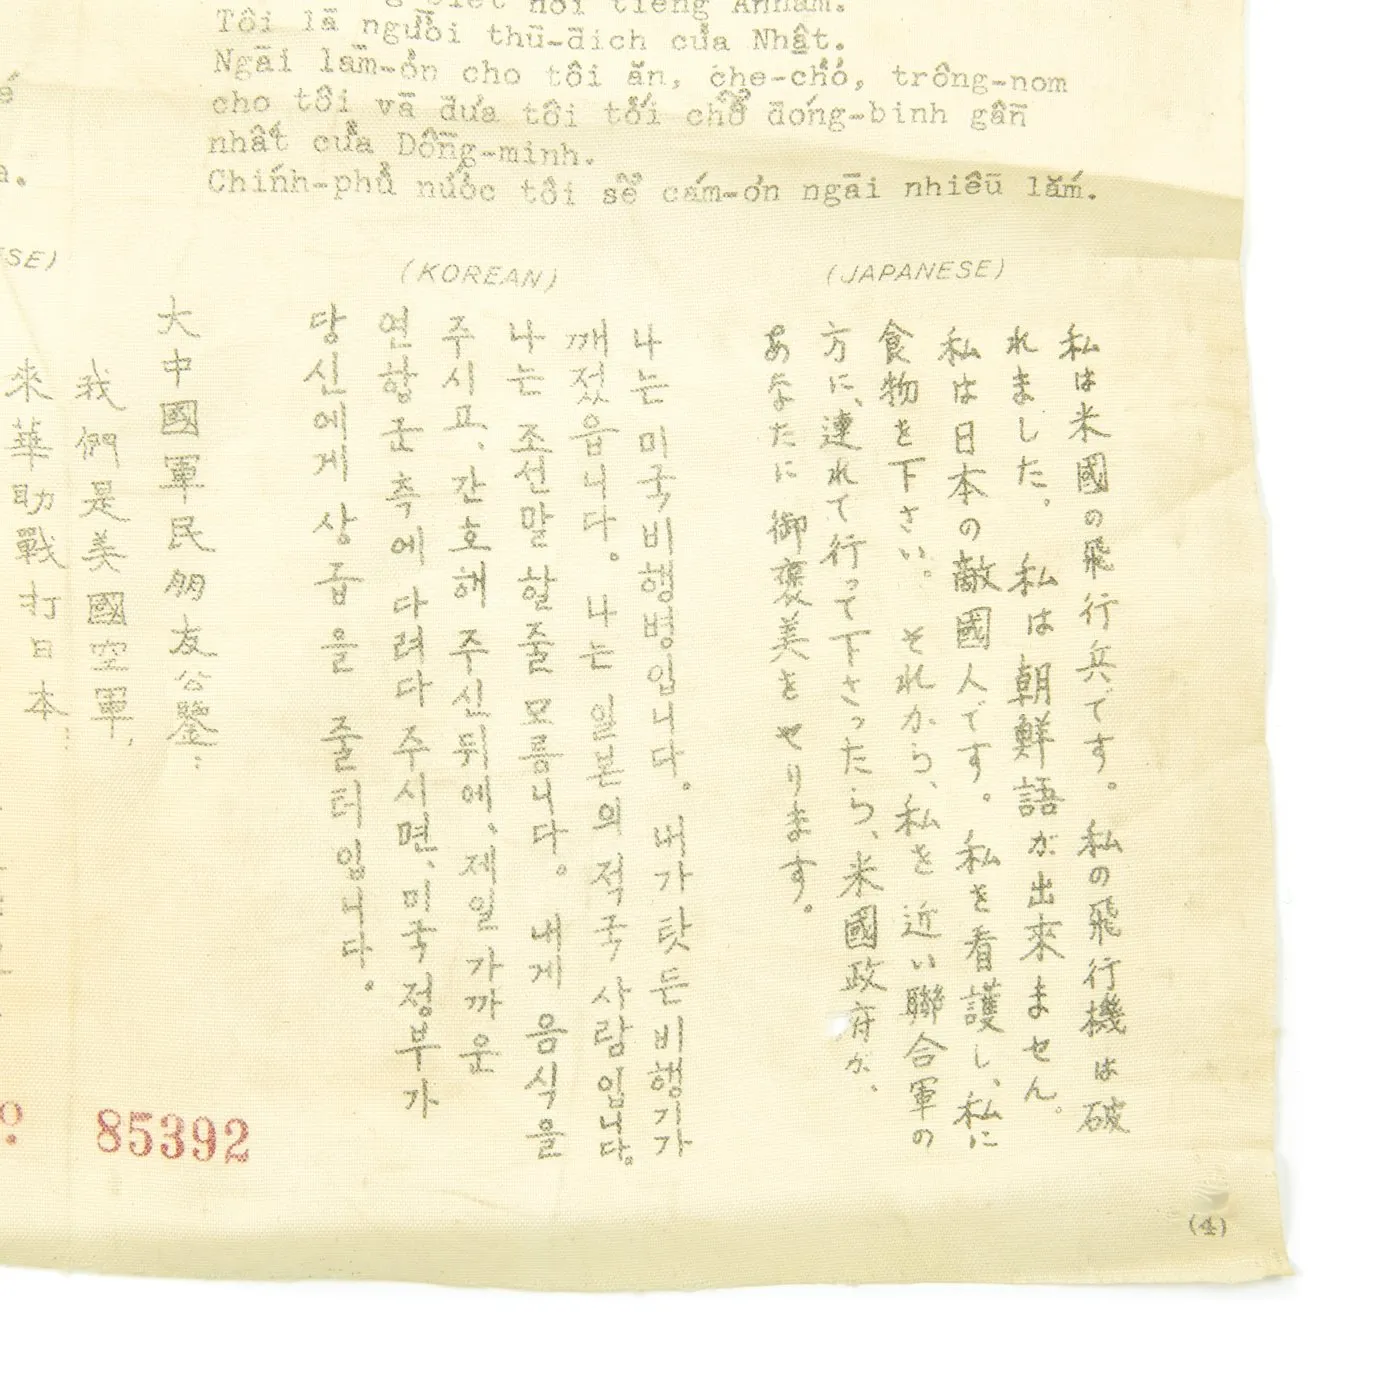 biết nói tiếng Annam.
Tôi là người thù-địch của Nhật.
Ngài làm-ơn cho tôi ăn, che-chở, trông-nom
cho tôi và đưa tôi tới chỗ đóng-binh gần
nhất của Đồng-minh.
Chính-phủ nước tôi sẽ cám-ơn ngài nhiều lắm.
(JAPANESE)
私は米國の飛行兵です。私の飛行機は破
れました。私は朝鮮語が出來ません。
私は日本の敵國人です。私を看護し、私に
食物を下さい。それから、私を近い聯合軍の
方に、連れて行って下さったら、米國政府が、
あなたに御褒美をやります。
(KOREAN)
나는 미국 비행병입니다. 내가 탓든 비행기가
깨젔읍니다. 나는 일본의 적국 사람입니다.
나는 조선말 할줄 모름니다. 내게 음식을
주시고, 간호해 주신뒤에, 제일 가까운
연합군 측에 다려다 주시면, 미국 정부가
당신에게 상급을 줄터입니다.
ESE)
大中國軍民朋友公鑒:
我們是美國空軍,
來華助戰打日本
85392
(4)